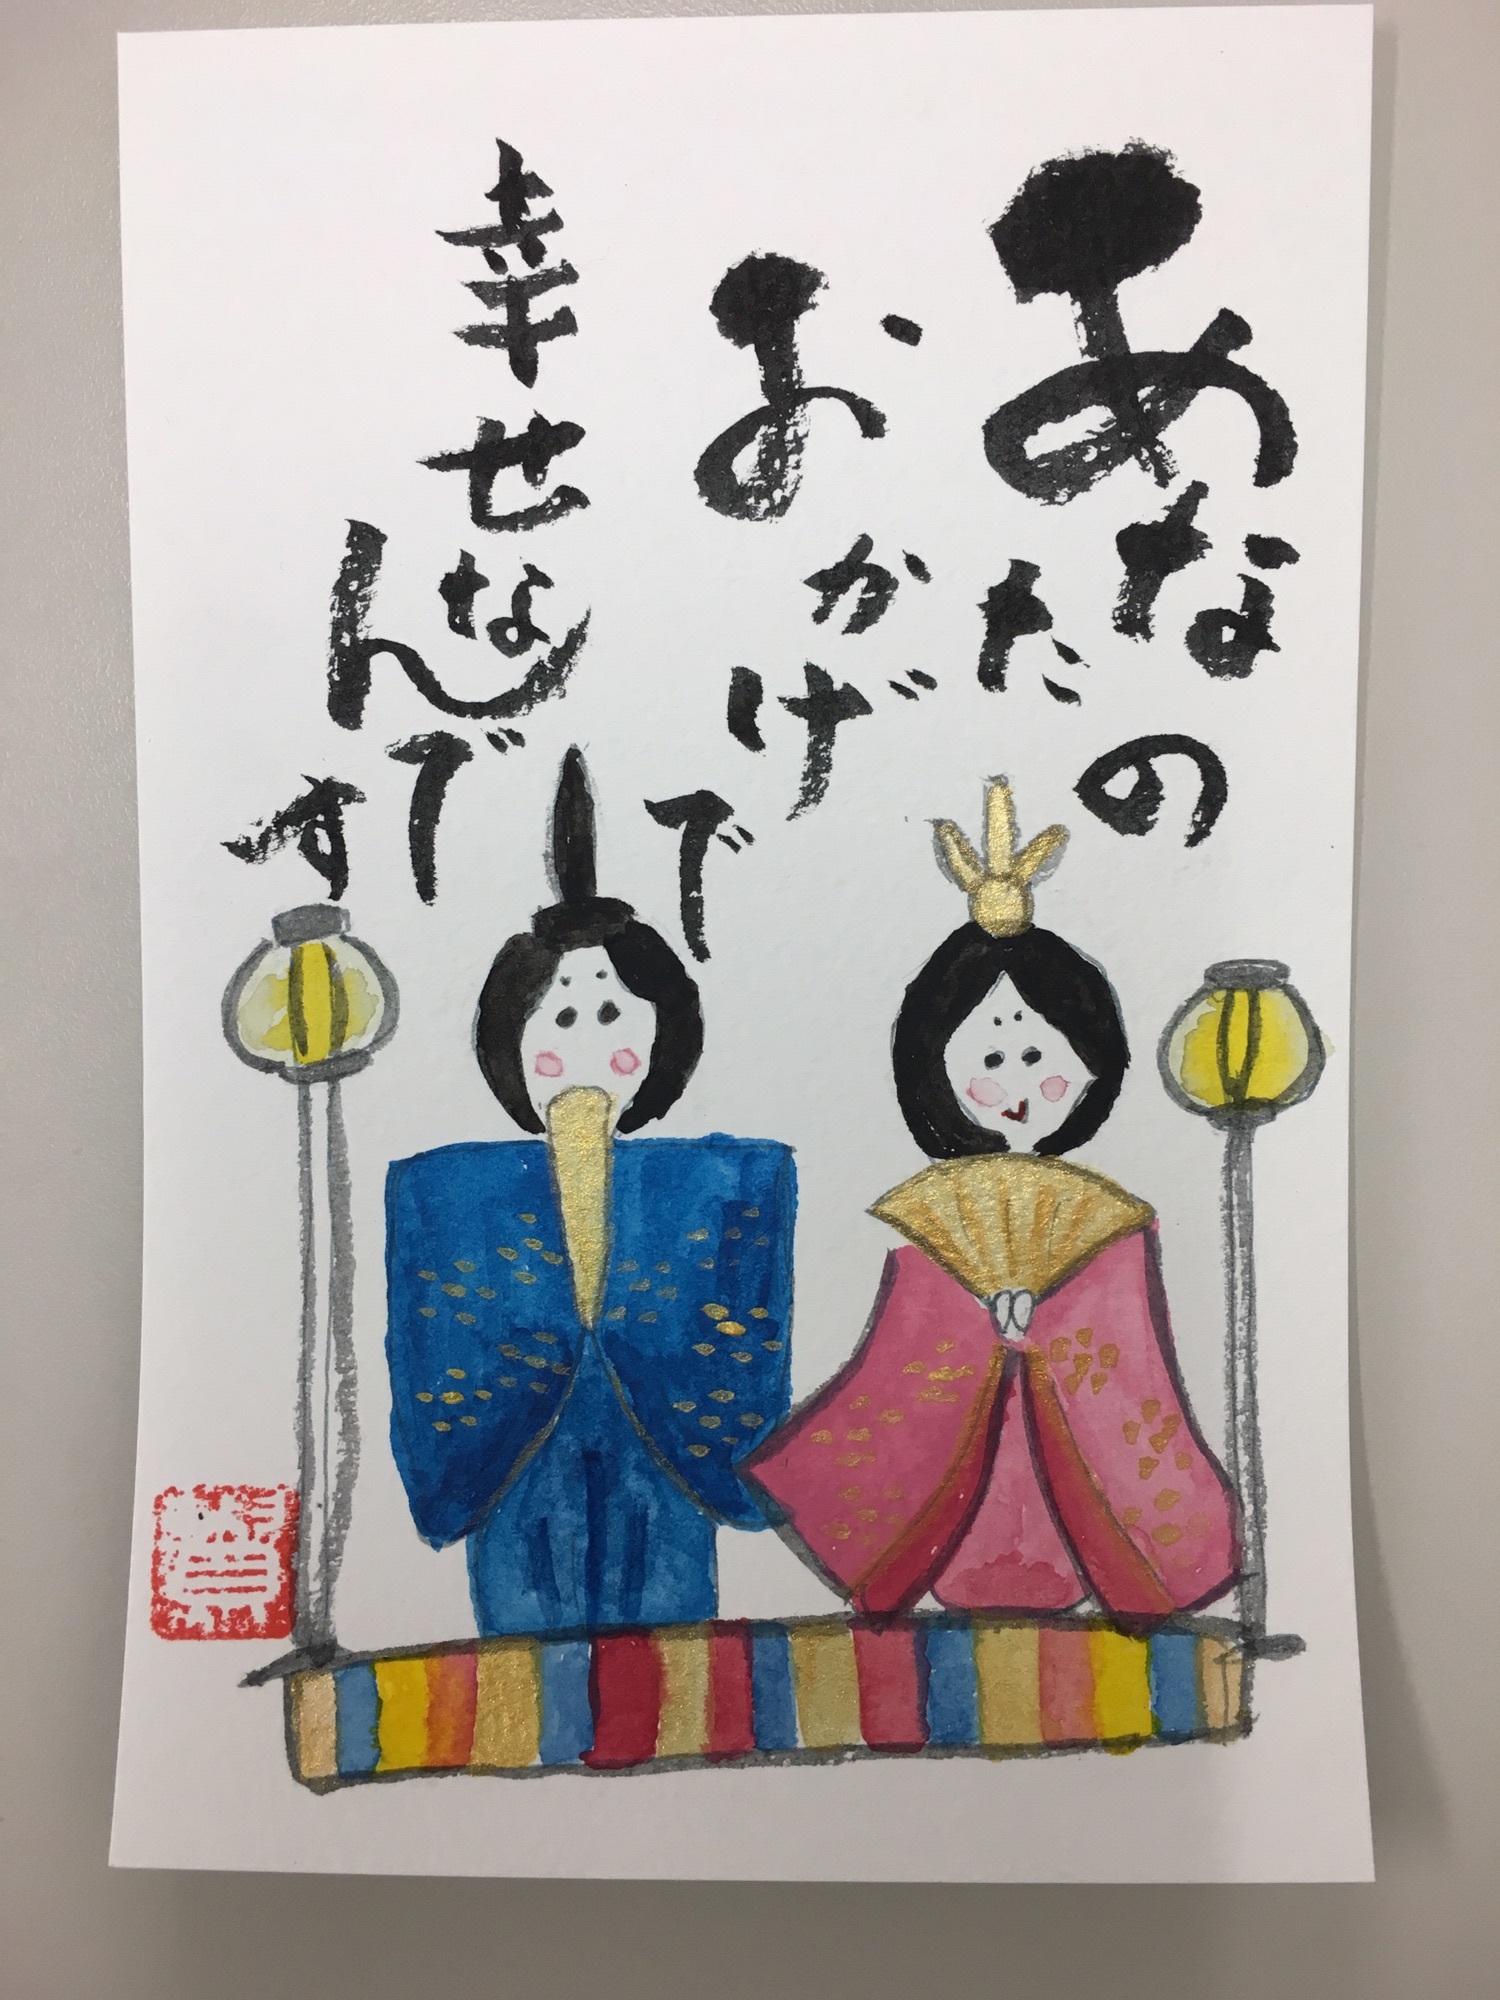 あなたの
おかげで
幸せなんです